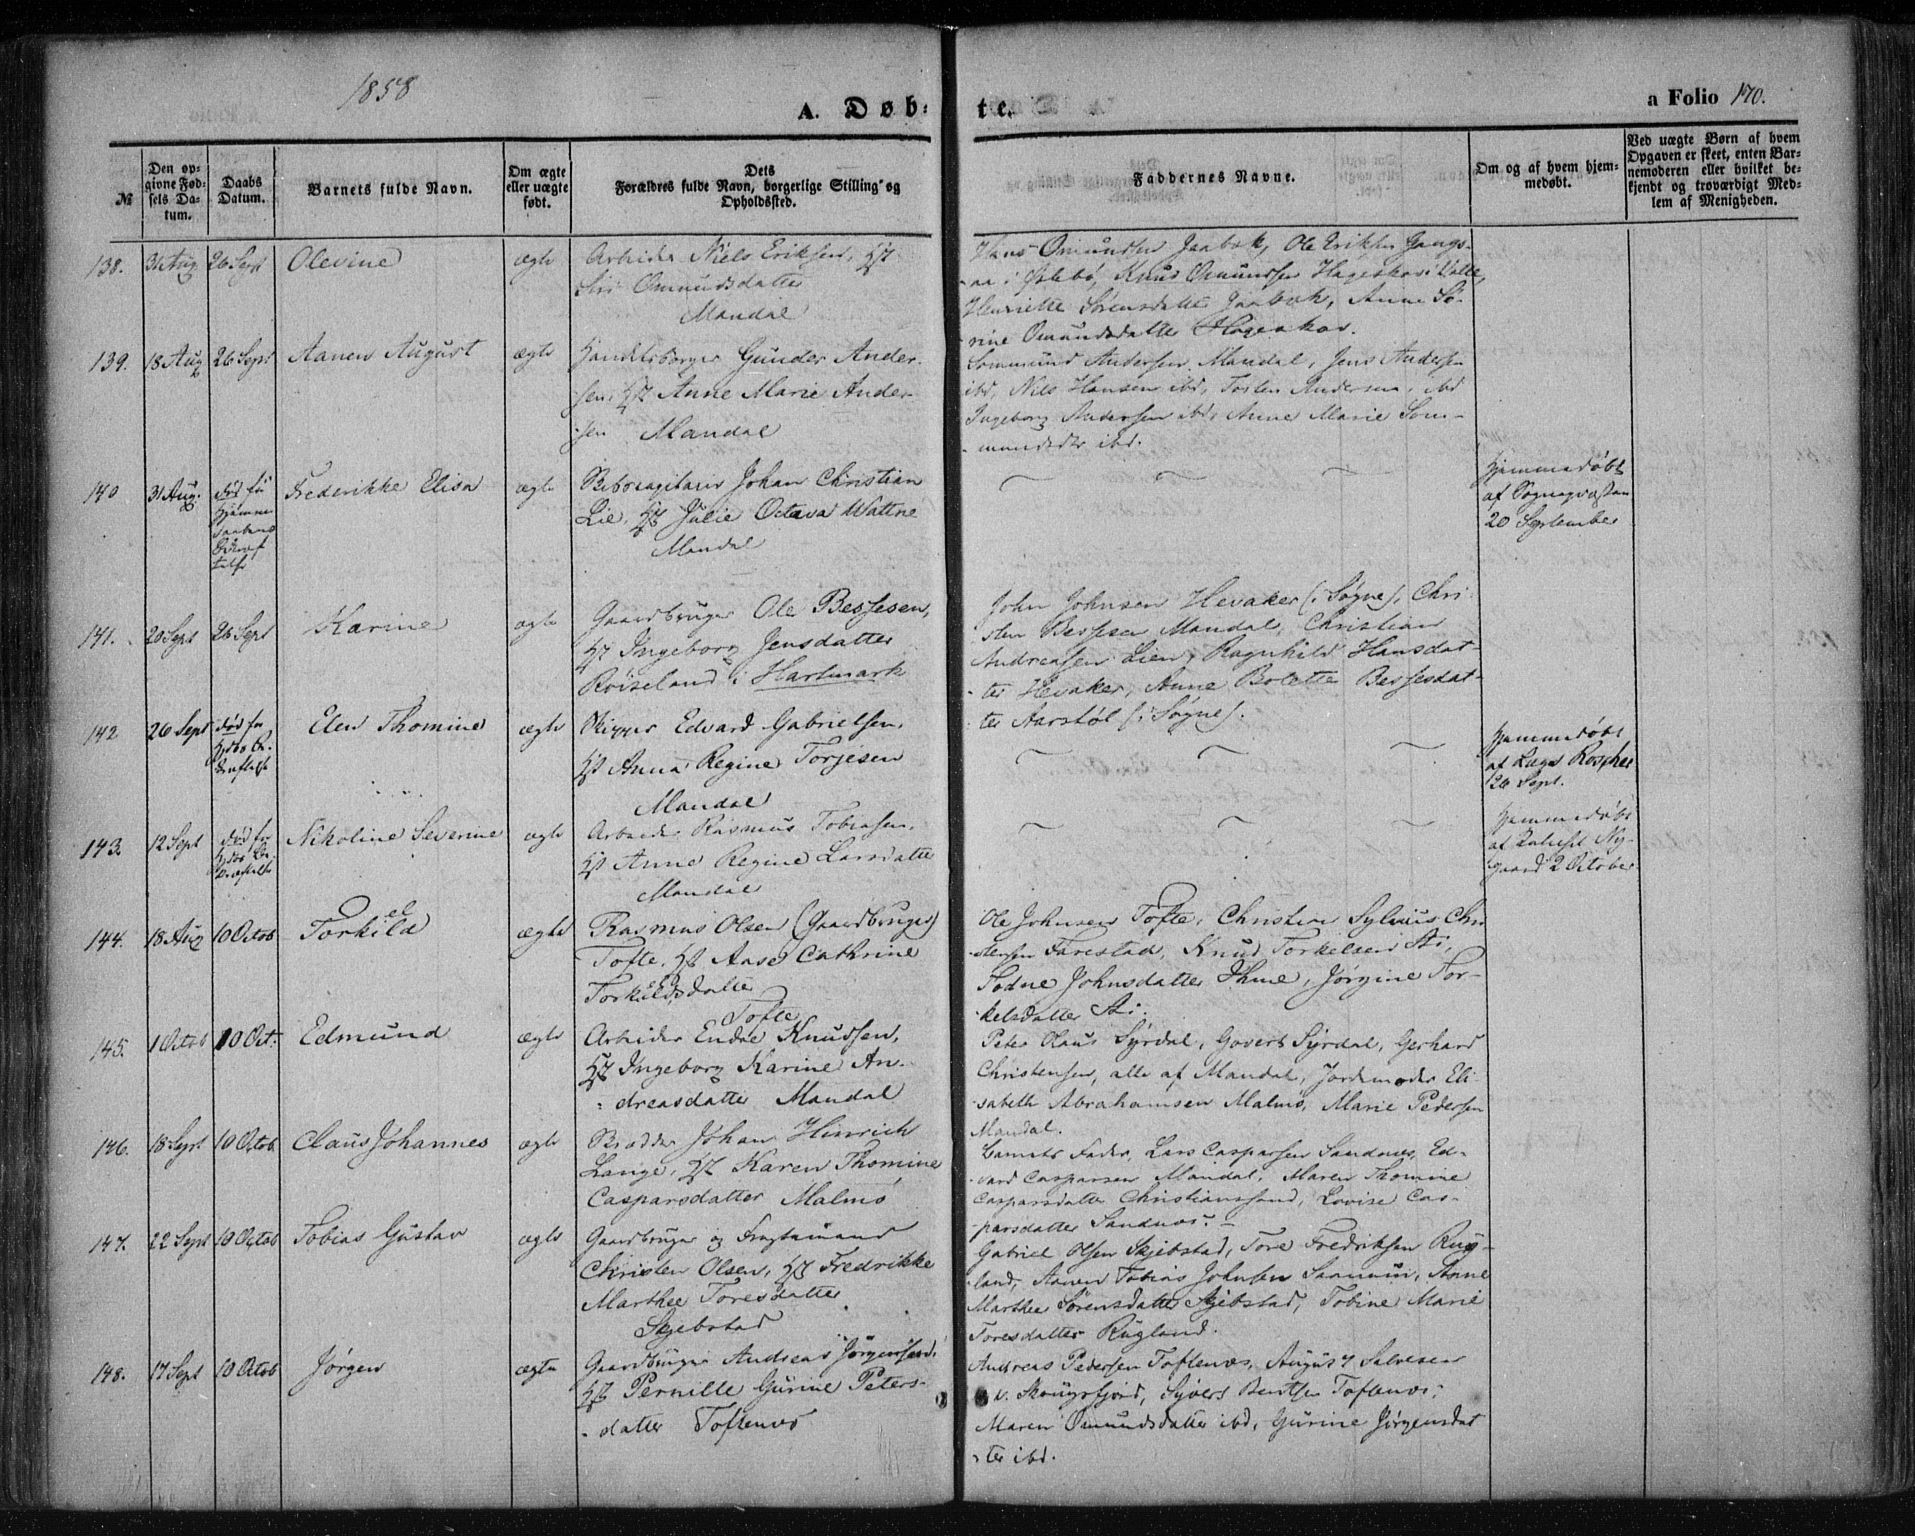 1858
A. Døb-
te.
a Folio 170.
№
Den op-
givne Fød-
sels Da-
tum.
Daabs
Datum.
Barnets fulde Navn.
Om ægte
eller uægte
født.
Dets
Forældres fulde Navn, borgerlige Stilling og
Opholdssted.
Faddernes Navne.
Om og af hvem hjem-
medøbt.
Ved uægte Børn af hvem
Opgaven er skeet, enten Bar-
nemoderen eller hvilket be-
kjendt og troværdigt Med-
lem af Menigheden.
138. 31 Aug 26 Sept Olevine ægte
Arbeider Niels Eriksen, Hst
Siri Omundsdatter
Mandal
Hans Omundsen Jaabæk, Ole Eriksen
Knud Omundsen Hageskov i Valle,
Henriette Sørensdatter Jaabæk, Anne Sø-
rine Omundsdatter Hageskov.
139. 18 Aug 26 Sept Aanen August ægte
Handelsborger Gunder Ander-
sen, Hst Anne Marie Ander-
sen Mandal
Sommund Andersen Mandal, Jens Andersen
ibd, Nils Hansen ibd, Torsten Andersen ibd
Ingeborg Andersen ibd, Anne Marie Som-
mundsdtr ibd.
140 31 Aug. Død før
Hjemme
daabens
Bekræf
telse
Frederikke Elisa ægte
Johan Christian
Lie, Hst Julie Octava Wattne
Mandal
Hjemmedøbt
af Sognepræsten
20 September
141. 20 Sept 26 Sept Karine ægte
Gaardbruger Ole Bessesen,
Hst Ingeborg Jensdatter
Röiseland i Hartmark
John Johnsen Hevaker (i Søgne), Chri-
sten Bessesen Mandal, Christian
Andreassen Lien, Ragnhild Hansdat-
ter Hevaker, Anne Bolette Bessesdat-
ter Aarstøl (i Søgne).
142 26 Sept Død før
Hjdbs Be-
kræftelse
Elen Thomine ægte
Skipper Edvard Gabrielsen,
Hst Anna Regine Torjesen
Mandal
Hjemmedøbt
af Læge Roscher
26 Sept.
143. 12 Sept Død før
Hjdbs Be-
kræftelse
Nikoline Severine ægte
Arbeider Rasmus Tobiasen,
Hst Anne Regine Larsdatter
Mandal
Hjemmedøbt
af Ny-
gaard 2 October
144. 18 Aug 10 Octob Torkild ægte
el
Rasmus Olsen (Gaardbruger)
Tofte, Hst Aase Cathrine
Torkildsdatter
Tofte
Ole Johnsen Tofte, Christen Sylvius Chri-
stensen Farestad, Knud Torkelsen Sti,
Johnsdatter Ihme, Jørgine Tor-
kelsdatter Sti.
145. 1 Octob 10 Oct. Edmund ægte
Arbeider Endre Knudsen,
Hst Ingeborg Karine An-
dreasdatter Mandal
Peter Olaus Syrdal, Govert Syrdal, Gerhard
Christensen, alle af Mandal, Jordemoder Eli-
sabeth Abrahamsen Malmø, Marie Pedersen
Mandal.
146. 18 Sept. 10 Octob. Claus Johannes ægte
Johan Hinrich
Lange, Hst Karen Thomine
Caspersdatter Malmø
Barnets Fader, Lars Caspersen Sandnes, Ed-
vard Caspersen Mandal, Maren Thomine
Caspersdatter Christianssand, Lovise Cas-
parsdatter Sandnes. -
147. 22 Sept 10 Octob Tobias Gustav ægte
Gaardbruger og Fragtemand
Christen Olsen, Hst Fredrikke
Marthee Toresdatter
Skjebstad
Gabriel Olsen Skjebstad, Tore Fredriksen Rug-
land, Aanen Tobias Johnsen Sanum, Anne
Marthee Sørensdatter Skjebstad, Tobine Marie
Toresdatter Rugland.
148. 17 Sept 10 Octob Jørgen ægte
Gaardbruger Andreas Jørgensen,
Hst Pernille Gurine Peters-
datter Toftenes
Andreas Pedersen Toftenes, August Salvesen
v. Skougsfjord, Syvert Bentsen Toftenes,
Maren Omundsdatter ibd, Gurine Jørgensdat
ter ibd.